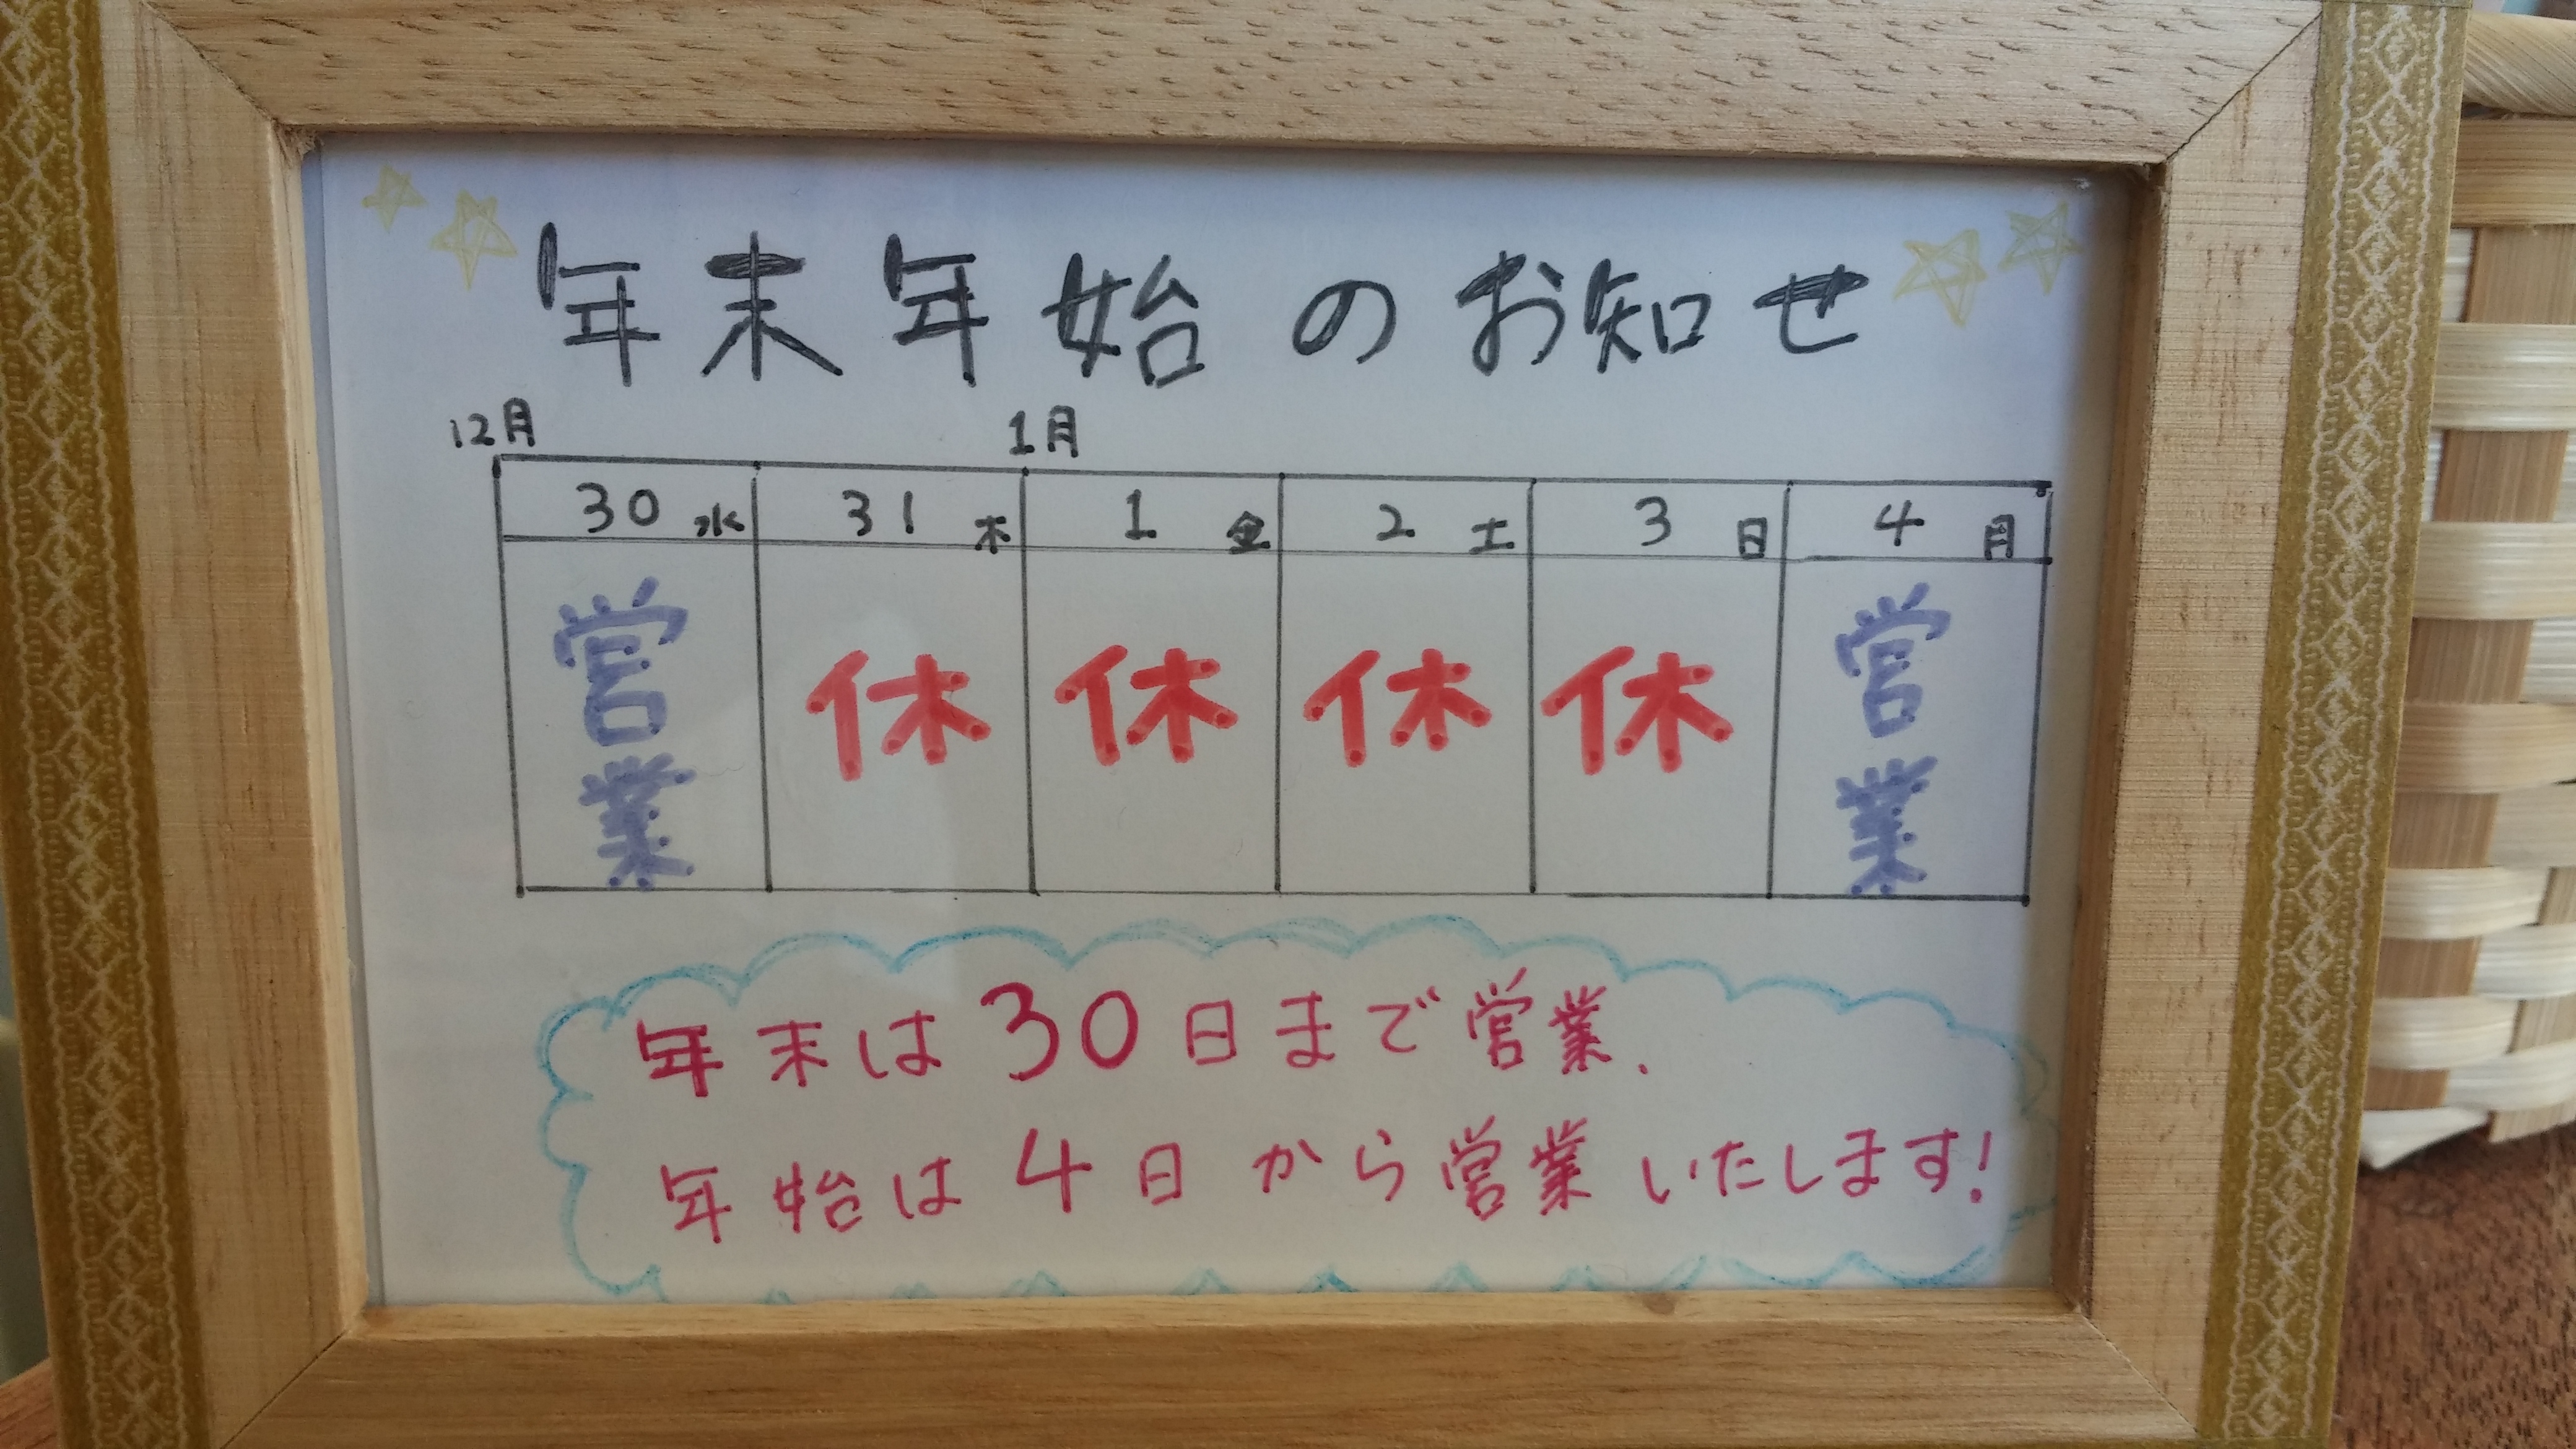 年末年始のお知らせ
12月 1月
30 水 31 木 1 金 2 土 3 日 4 月
営業 休 休 休 休 営業
年末は30日まで営業.
年始は4日から営業いたします!